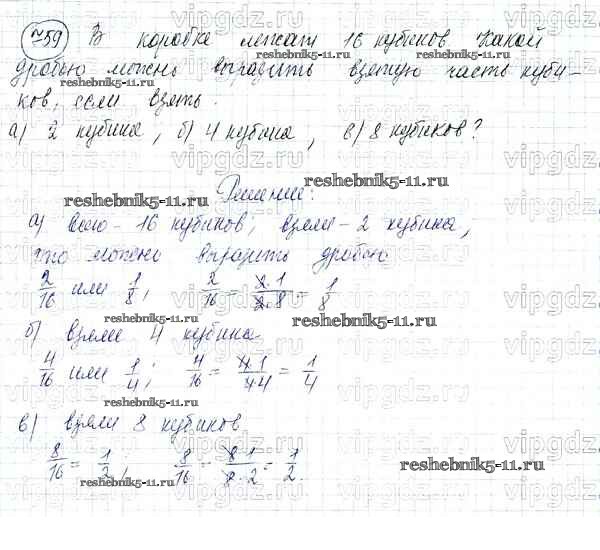 №59 В коробке лежат 16 кубиков. Какой
дробью можно выразить взятую часть куби-
ков, если взять:
а) 2 кубика, б) 4 кубика, в) 8 кубиков?
Решение:
а) всего - 16 кубиков, взяли - 2 кубика,
это можно выразить дробью
2/16 или 1/8; 2/16 = 2·1/2·8 = 1/8
б) взяли 4 кубика
4/16 или 1/4; 4/16 = 4·1/4·4 = 1/4
в) взяли 8 кубиков
8/16 = 1/2, 8/16 = 8·1/8·2 = 1/2.
vipgdz.ru
reshebnik5-11.ru